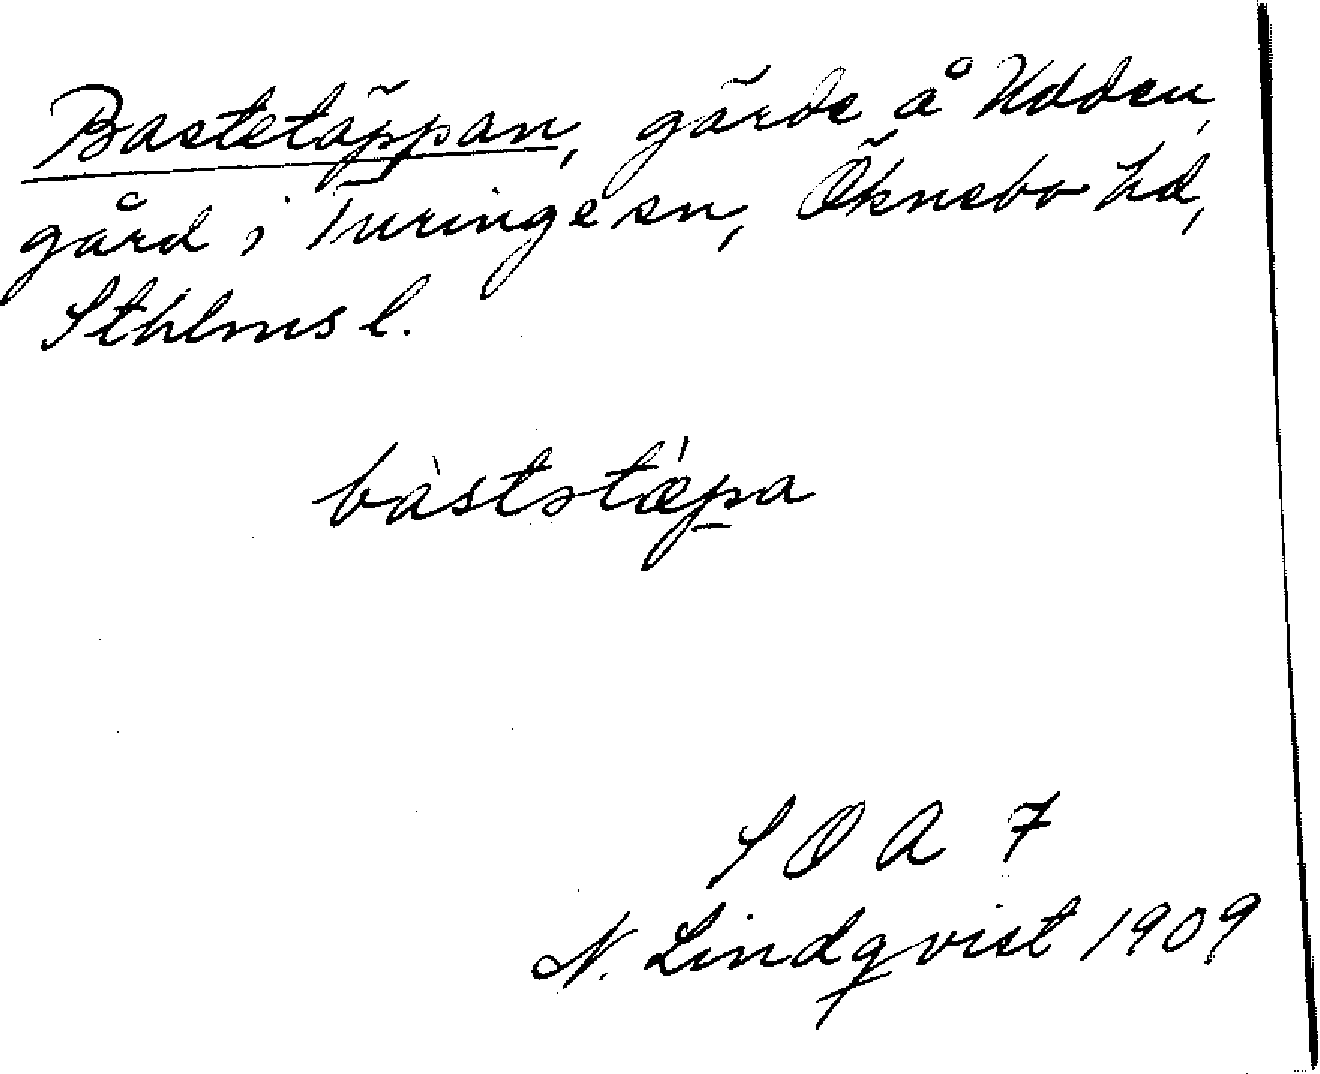 Bastetäppan, gärde å Udden,
gård i Turinge sn, Öknebo hd,
Sthlms l.
bàststæ̀pa
S O A 7
N. Lindqvist 1909